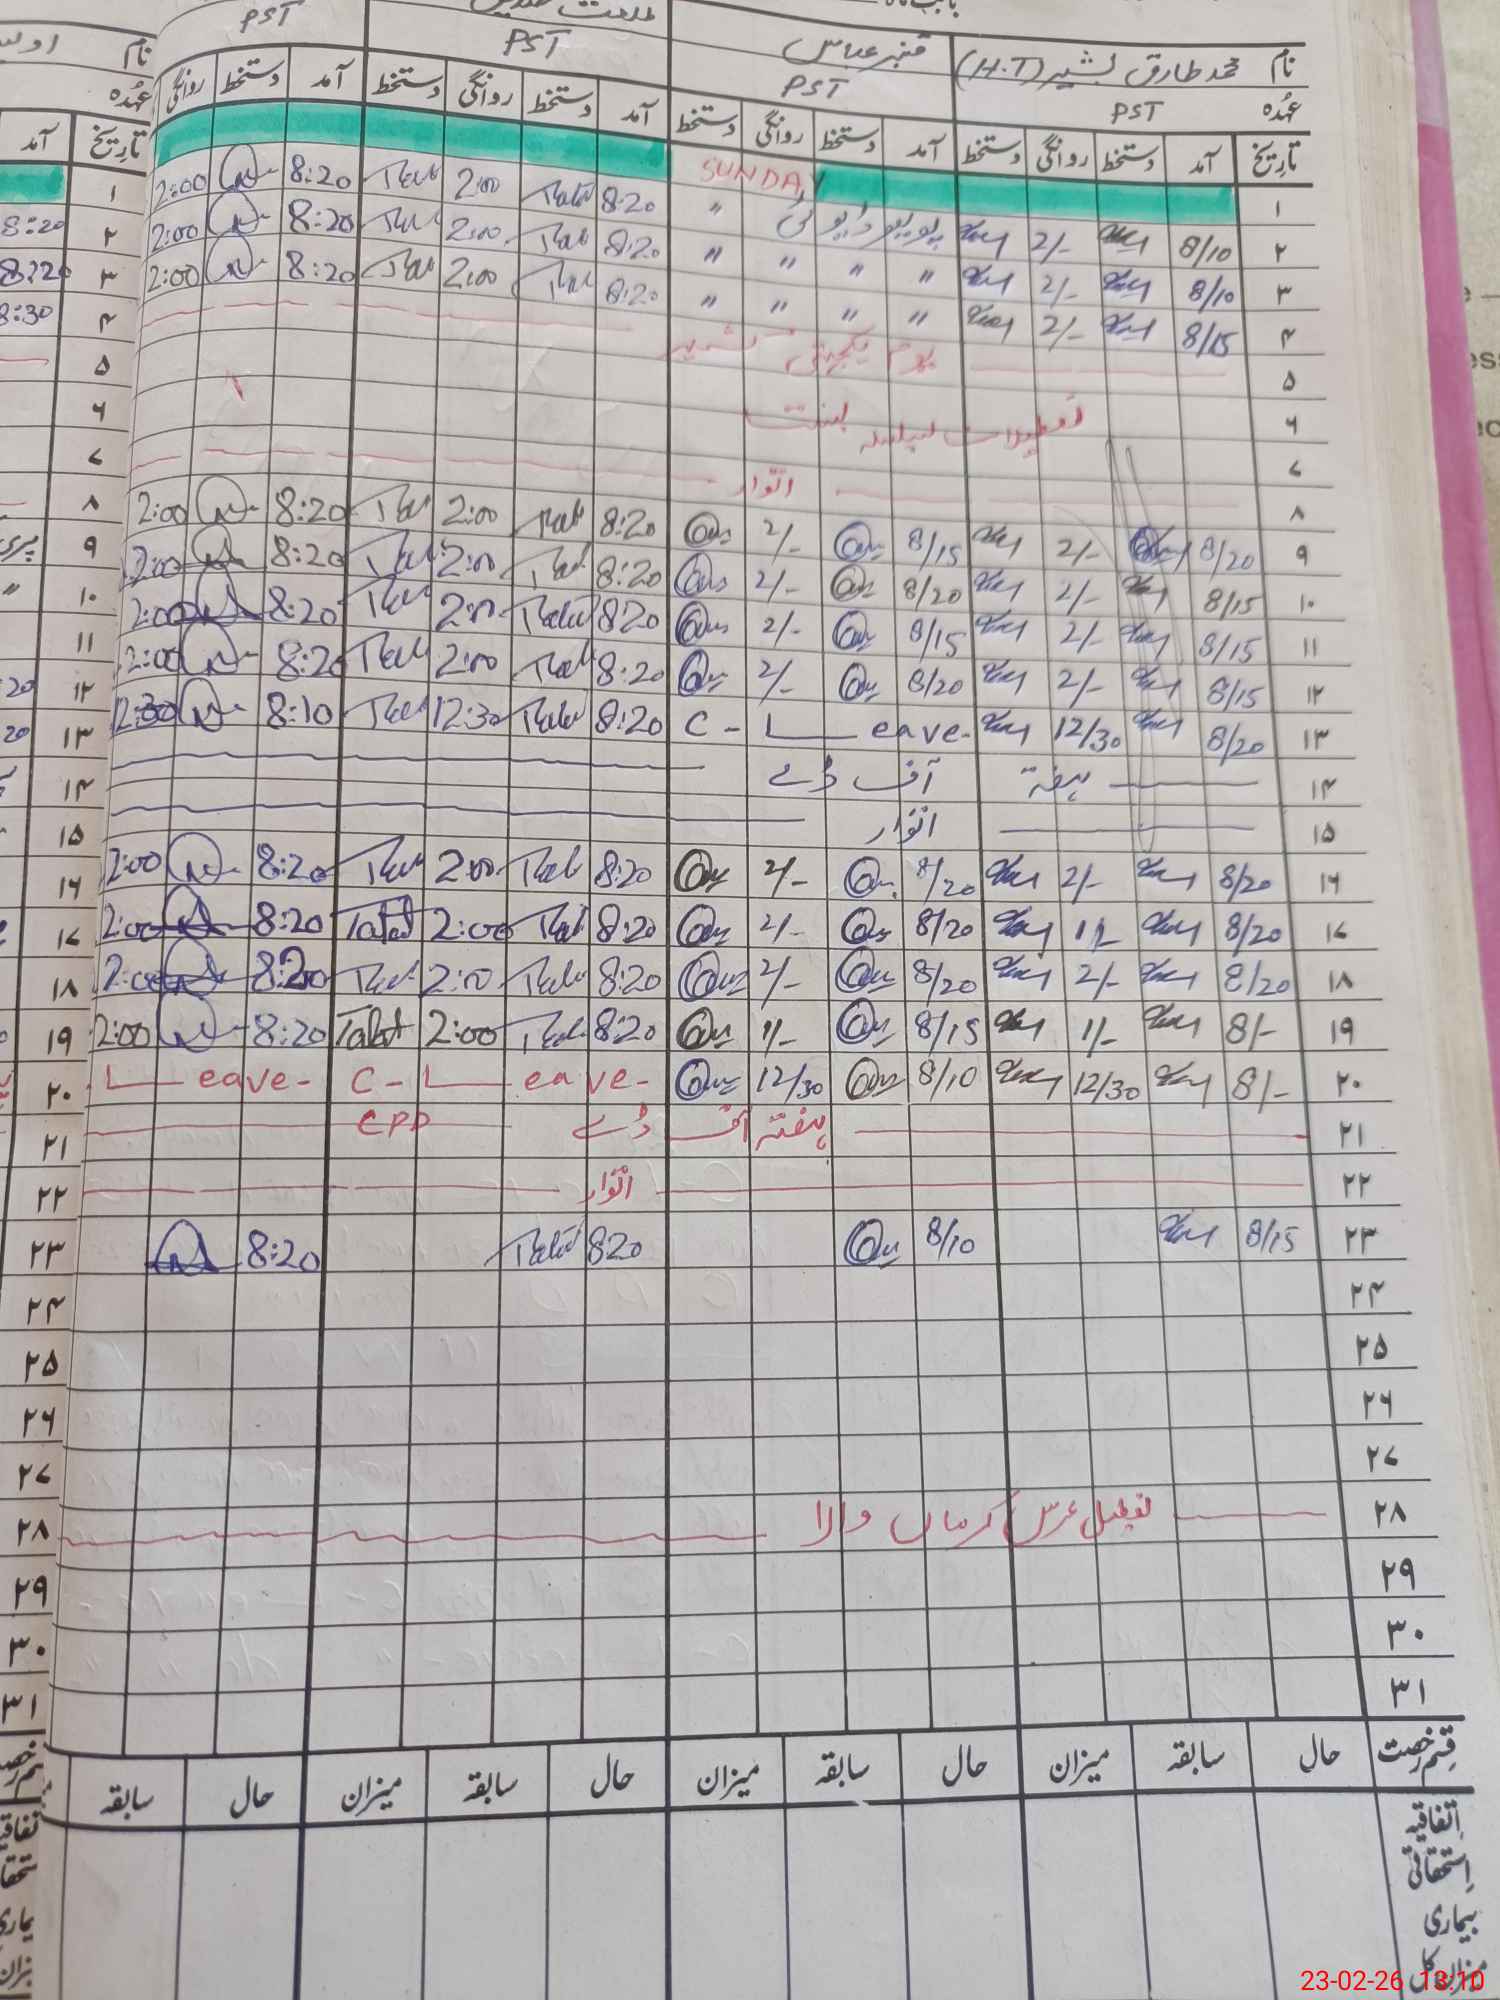 PST
نام محمد طارق بشیر (H.T) قنبر عباس
عہدہ PST PST PST
تاریخ آمد دستخط روانگی دستخط آمد دستخط روانگی دستخط آمد دستخط روانگی دستخط آمد دستخط روانگی
۱ SUNDAY
۲ 8/10 2/- پولیو ڈیوٹی " 8:20 2:00 8:20 2:00
۳ 8/10 2/- " " " " 8:20 2:00 8:20 2:00
۴ 8/15 2/- " " " " 8:20 2:00 8:20 2:00
۵ یوم یکجہتی کشمیر
۶ تعطیلات بسلسلہ بسنت
۷
۸ اتوار
۹ 8/20 2/- 8/15 2/- 8:20 2:00 8:20 2:00
۱۰ 8/15 2/- 8/20 2/- 8:20 2:00 8:20 2:00
۱۱ 8/15 2/- 8/15 2/- 8:20 2:00 8:20 2:00
۱۲ 8/15 2/- 8/20 2/- 8:20 2:00 8:20 2:00
۱۳ 8/20 12/30 C-Leave- 8:20 12:30 8:10 12:30
۱۴ ہفتہ آف ڈے
۱۵ اتوار
۱۶ 8/20 2/- 8/20 2/- 8:20 Talat 2:00 8:20 2:00
۱۷ 8/20 1/- 8/20 2/- 8:20 2:00 Talat 8:20 2:00
۱۸ 8/20 2/- 8/20 2/- 8:20 2:00 8:20 2:00
۱۹ 8/- 1/- 8/15 1/- 8:20 2:00 Talat 8:20 2:00
۲۰ 8/- 12/30 8/10 12/30 C-Leave- Leave-
۲۱ ہفتہ آف ڈے CPD
۲۲ اتوار
۲۳ 8/15 8/10 820 8:20
۲۴
۲۵
۲۶
۲۷
۲۸ تعطیل عرس کرماں والا
۲۹
۳۰
۳۱
قسم رخصت حال سابقہ میزان حال سابقہ میزان حال سابقہ میزان حال سابقہ
اتفاقیہ
استحقاقی
بیماری
میزان کل
23-02-26 13:10